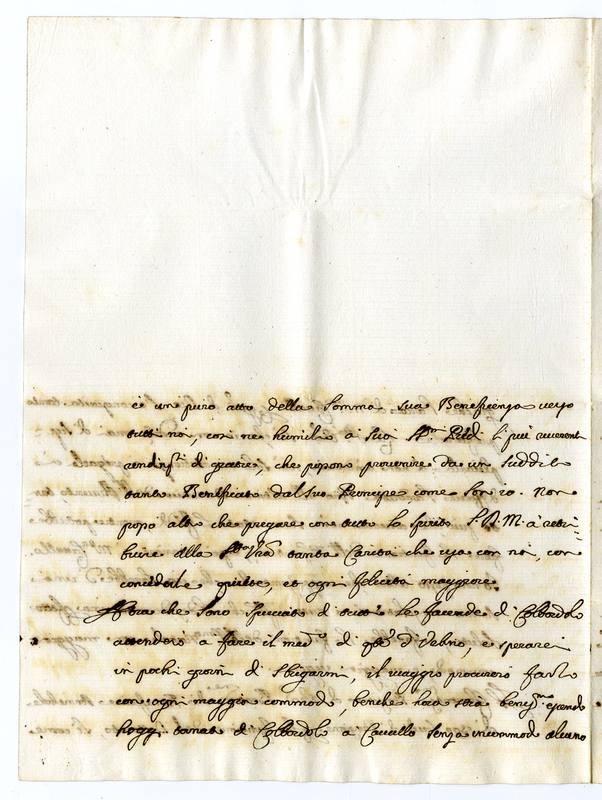 è un puro atto della somma sua Beneficenza verso
tutti noi, così ne humilio a suoi SS.mi Piedi li più reverenti
rendim.ti di gratie, che possono provenire da un suddito
tanto Beneficato dal suo Principe come son io. Non
posso altro che pregare con tutto lo spirito S.D.M. a retri=
buire alla S.tà V.ra tanta Carità che usa con noi, con
concederle salute, et ogni felicità maggiore.
Hora che sono spicciato di tutte le facende di Colbordolo
attendero a fare il med.o di q.lle d'Urbino, e sperarei
in pochi giorni di sbrigarmi, il viaggio procurarò farlo
con ogni maggior commodo, benche hora stia beniss.mo essendo
hoggi tornato di Colbordolo a Cavallo senza incommodo alcuno